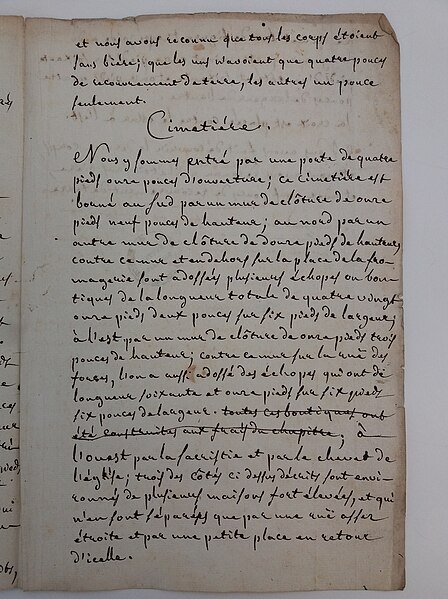 et nous avons reconnu que tous les corps étoient
sans bière; que les uns n'avoient que quatre pouces
de recouvrement de terre, les autres un pouce
seulement.
Cimetière.
Nous y sommes entré par une porte de quatre
pieds onze pouces d'ouverture; ce cimetière est
borné au sud par un mur de clôture de onze
pieds neuf pouces de hauteur; au nord par un
autre mur de clôture de douze pieds de hauteur,
contre ce mur et en dehors sur la place de la fro-
magerie sont adossés plusieurs échopes ou bou-
tiques de la longueur totale de quatre vingt
onze pieds deux pouces sur six pieds de largeur;
à l'est par un mur de clôture de onze pieds trois
pouces de hauteur; contre ce mur sur la rue des
forges, l'on a aussi adossé des échopes qui ont de
longueur soixante et onze pieds sur six pieds
six pouces de largeur. toutes ces boutiques ont
été construites aux frais du chapitre; à
l'ouest par la sacristie et par le chevet de
l'église; trois des côtés ci dessus décrits sont envi-
ronnés de plusieurs maisons fort élevées, et qui
n'en sont séparées que par une ruë assez
étroite et par une petite place en retour
d'icelle.